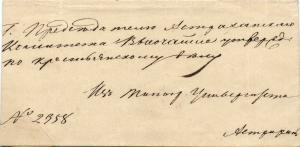 Г. Председателю Астраханского
Комитета Высочайше утвержд.
по крестьянскому делу
Изъ Импер. Университета
№ 2958
Астрахан